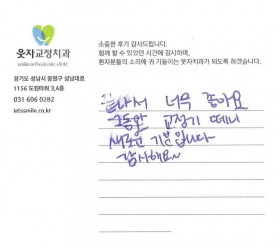 웃자교정치과
smile orthodontic clinic
경기도 성남시 중원구 성남대로
1156 도원타워 3,4층
031 606 0282
letssmile.co.kr
소중한 후기 감사드립니다.
함께 할 수 있었던 시간에 감사하며,
환자분들의 소리에 귀 기울이는 웃자치과가 되도록 하겠습니다.
끝나서 너무 좋아요
그동안 교정기 떼니
새로운 기분입니다
감사해요~